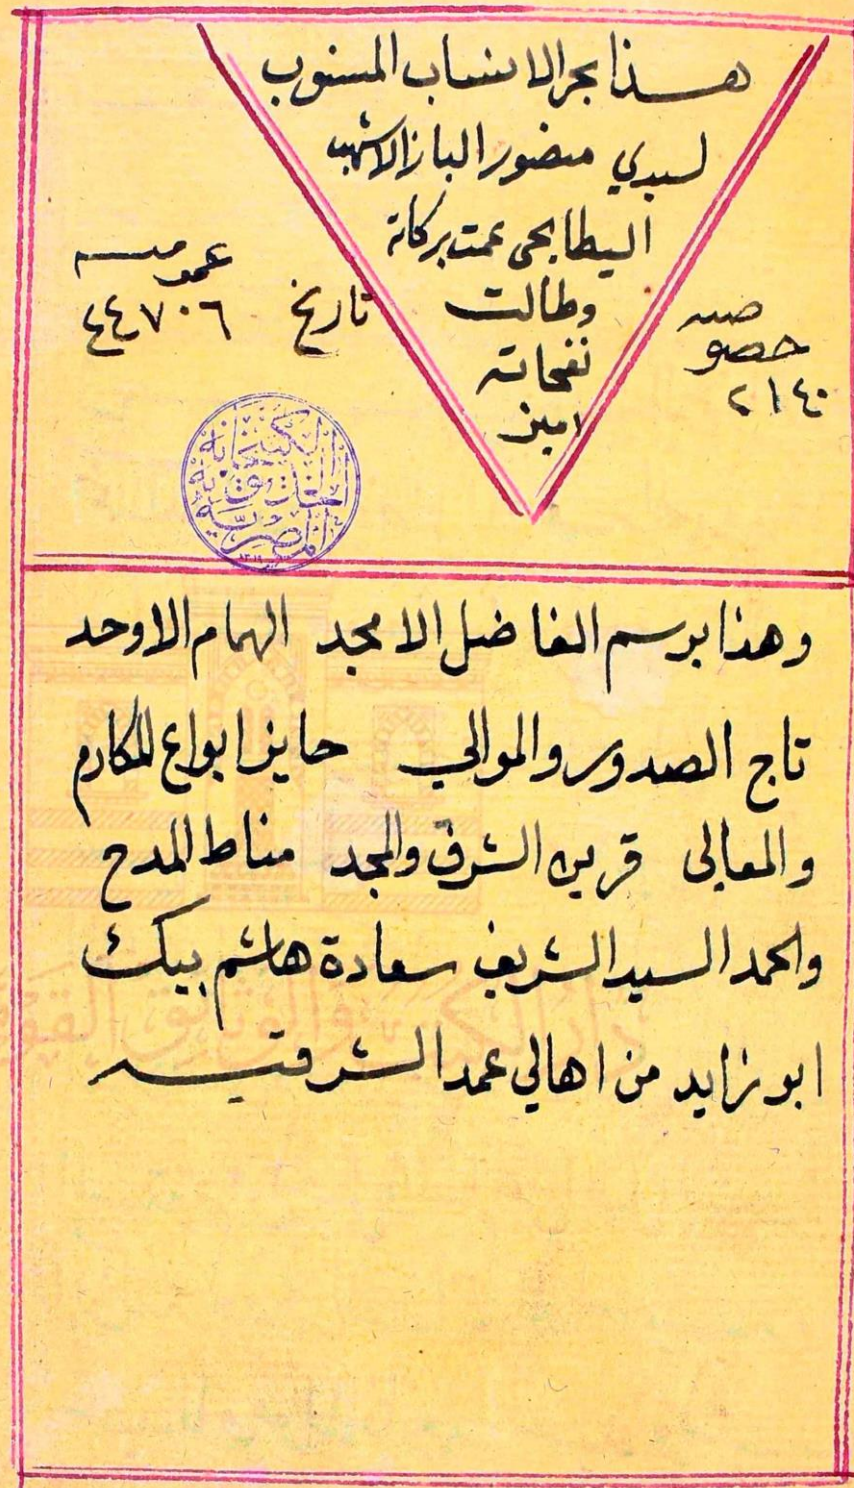 هذا بحر الانساب المنسوب
لسيدي منصور الباز الاشهب
البطايحى عمت بركاته
وطالت
نفحاته
امين
خصوصيه
٢١٤٠
تاريخ
عموميه
٤٤٧٠٦
الكتبخانة
الخديوية
المصرية
وهذا برسم الفاضل الامجد الهمام الاوحد
تاج الصدور والموالي حايز ابواع المكارم
والمعالى قرين الشرف والمجد مناط المدح
والحمد السيد الشريف سعادة هاشم بيك
ابو زايد من اهالي عمد الشرقيه
دار الكتب والوثائق